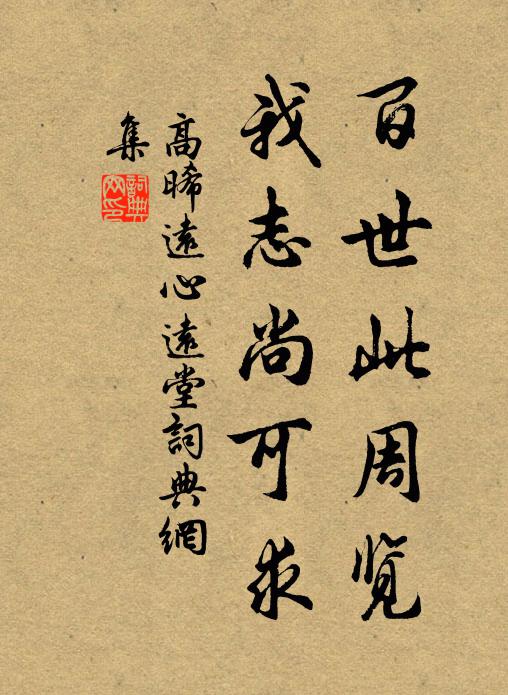 百世此周览
我志尚可求
高晞遠心遠堂詞典網
集
詞典
网印